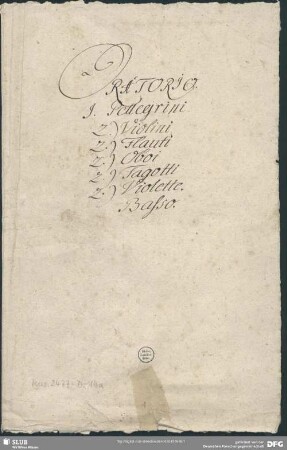 ORATORIO.
I. Pellegrini
2.) Violini
2.) Flauti
2.) Oboi
2.) Fagotti
2.) Violette.
Basso.
SLUB
Wir führen Wissen.
DFG